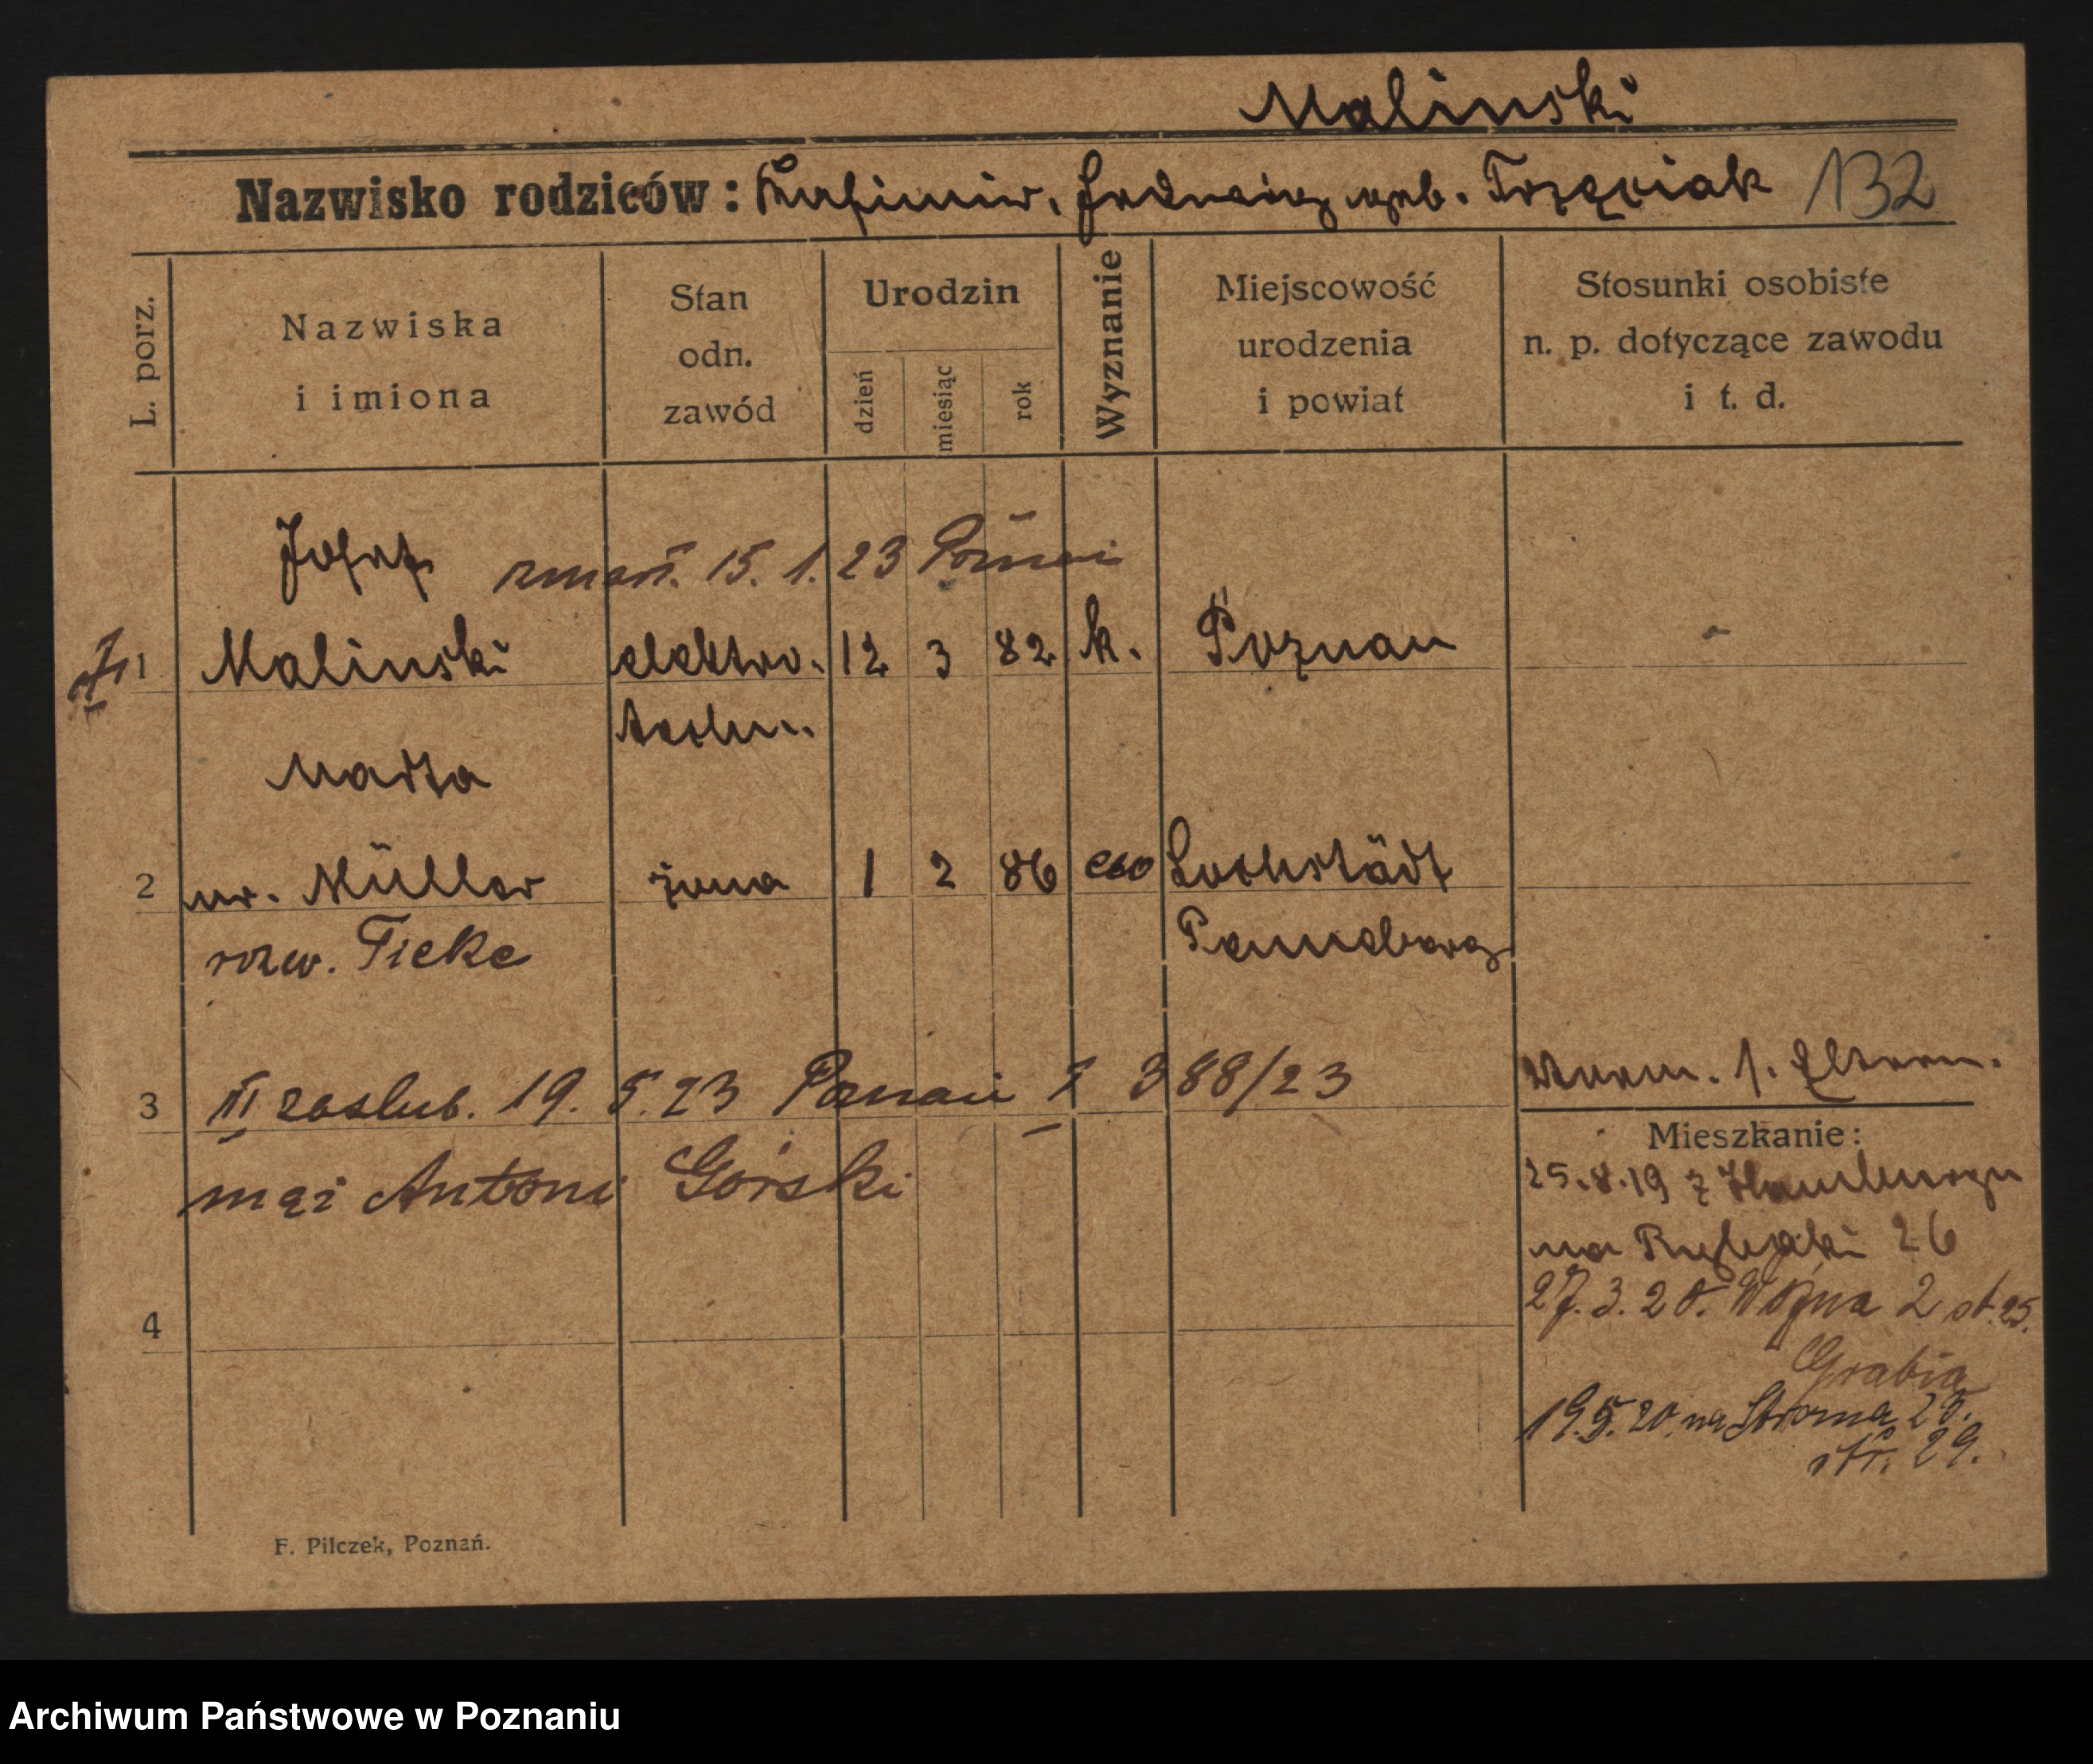 Malinski
Nazwisko rodziców: Kasimir, Jadwiga geb. Trzęciak 132
L. porz.
Nazwiska i imiona
Stan odn. zawód
Urodzin
dzień miesiąc rok
Wyznanie
Miejscowość urodzenia i powiat
Stosunki osobiste n. p. dotyczące zawodu i t. d.
Josef zmarł. 15. 1. 23 Poznań
1 Malinski elektro. 12 3 82 k. Poznan
techn.
Marta
2 ur. Müller żona 1 2 86 ew Lochstädt
rozw. Ticke
3 III zaślub. 19. 5. 23 Poznań I 388/23
mąż Antoni Górski
Mieszkanie:
25.8.19 z Hamburga
na Rybaki 26
27.3.20. Woźna 2 st. 25.
Grabia
19.5.20. na Stroma 23.
str. 29.
4
F. Pilczek, Poznań.
Archiwum Państwowe w Poznaniu